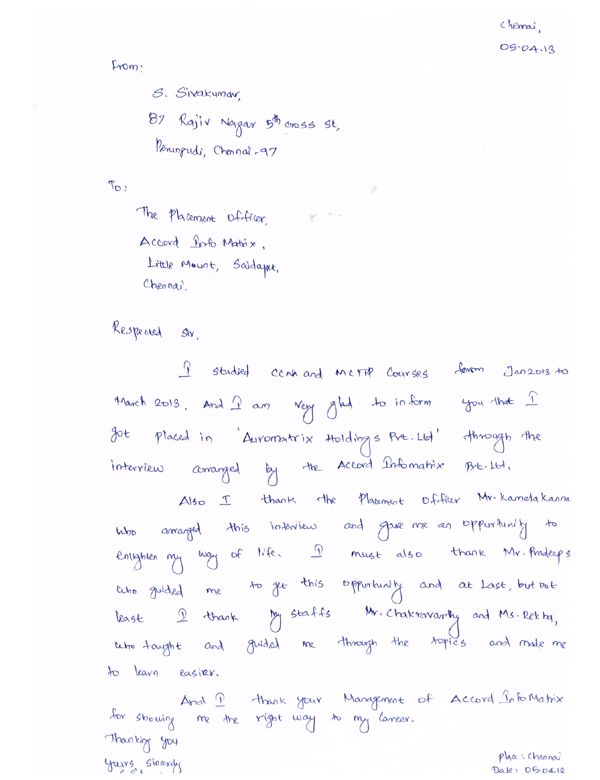 Chennai,
05.04.13
From:
S. Sivakumar,
87 Rajiv Nagar 5th cross st,
Perungudi, Chennai-97
To:
The Placement Officer,
Accord Info Matrix,
Little Mount, Saidapet,
Chennai.
Respected Sir,
I studied CCNA and MCITP Courses from Jan 2013 to
March 2013. And I am very glad to inform you that I
got placed in 'Auromatrix Holdings Pvt. Ltd' through the
interview arranged by the Accord Infomatrix Pvt. Ltd.
Also I thank the Placement Officer Mr. Kamalakanna
who arranged this interview and gave me an opportunity to
enlighten my way of life. I must also thank Mr. Pradeep S
who guided me to get this opportunity and at Last, but not
least I thank my staffs Mr. Chakravarthy and Ms. Rekha,
who taught and guided me through the topics and make me
to learn easier.
And I thank your Management of Accord InfoMatrix
for showing me the right way to my career.
Thanking you
Yours sincerely
Place : Chennai
Date : 05.04.12